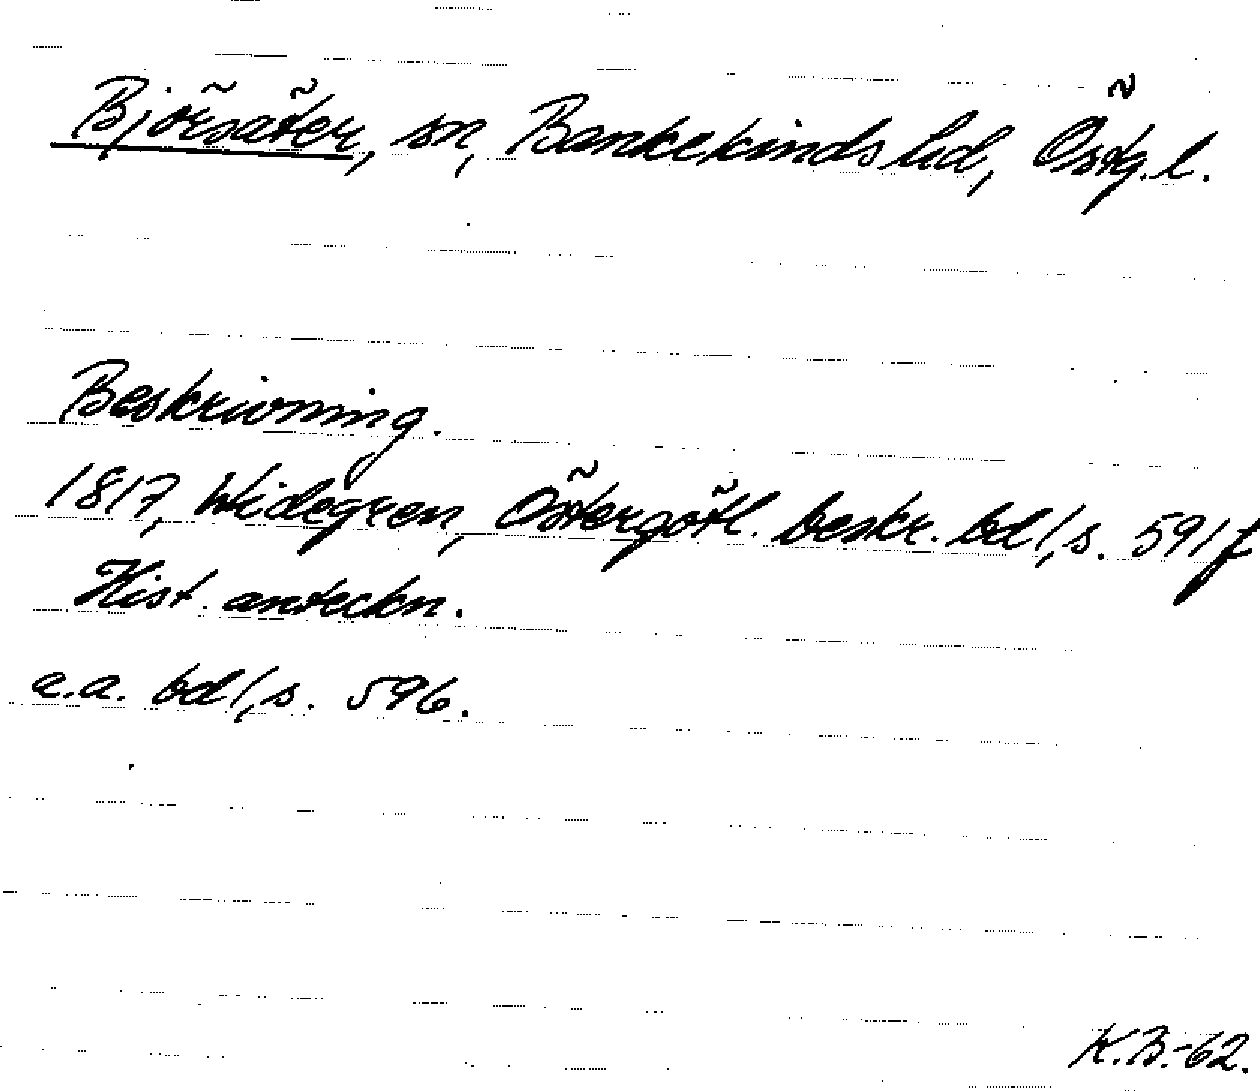 Björsäter, sn, Bankekinds hd, Östg. l.
Beskrivning.
1817, Widegren, Östergötl. beskr. bd 1, s. 591 f
Hist. anteckn.
a.a. bd 1, s. 596.
K.B.-62.